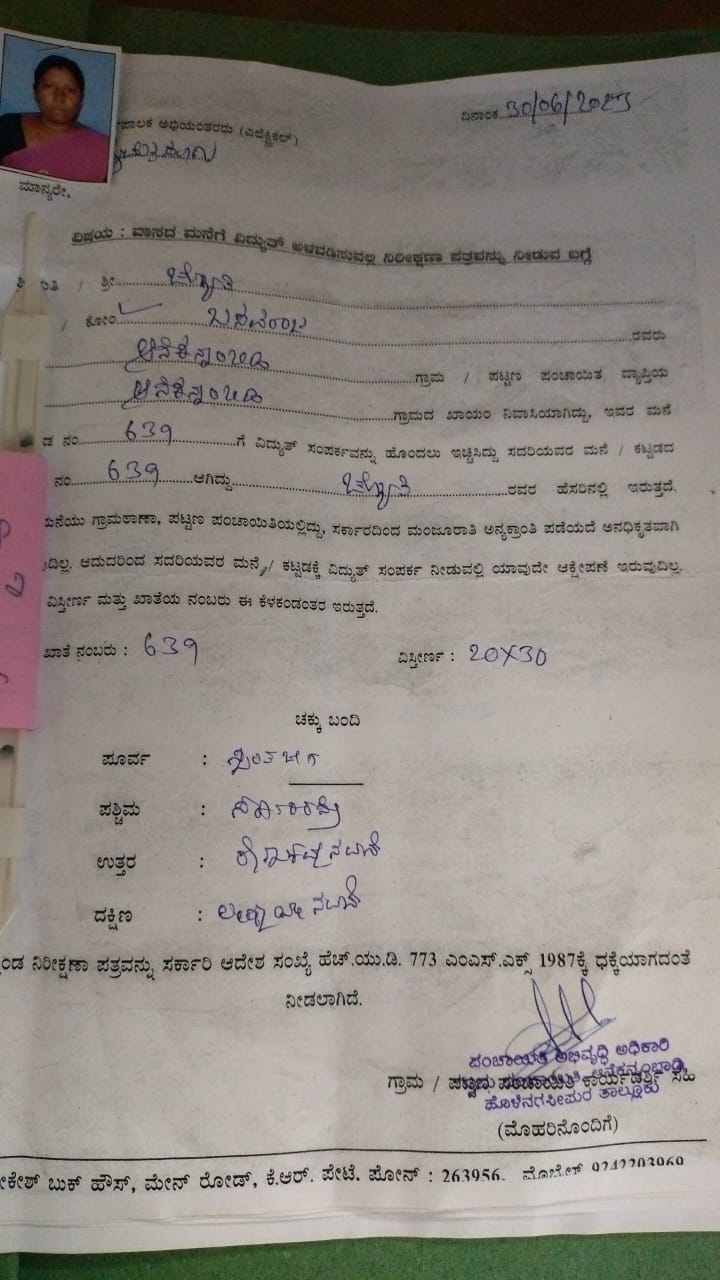 ದಿನಾಂಕ 30/06/2023
ಪಾಲಕ ಅಭಿಯಂತರರು (ಎಲೆಕ್ಟ್ರಿಕಲ್)
ಮಾನ್ಯರೇ,
ವಿಷಯ : ವಾಸದ ಮನೆಗೆ ವಿದ್ಯುತ್ ಅಳವಡಿಸುವಲ್ಲಿ ನಿರೀಕ್ಷಣಾ ಪತ್ರವನ್ನು ನೀಡುವ ಬಗ್ಗೆ
ಮತಿ / ಶ್ರೀ. ಜ್ಯೋತಿ
/ ಕೋಂ ಬಸವರಾಜ ರವರು
ಆನೆಕನ್ನಂಬಾಡಿ ಗ್ರಾಮ / ಪಟ್ಟಣ ಪಂಚಾಯಿತ ವ್ಯಾಪ್ತಿಯ
ಆನೆಕನ್ನಂಬಾಡಿ ಗ್ರಾಮದ ಖಾಯಂ ನಿವಾಸಿಯಾಗಿದ್ದು, ಇವರ ಮನೆ
ಡ ನಂ. 639 ಗೆ ವಿದ್ಯುತ್ ಸಂಪರ್ಕವನ್ನು ಹೊಂದಲು ಇಚ್ಛಿಸಿದ್ದು ಸದರಿಯವರ ಮನೆ / ಕಟ್ಟಡದ
ನಂ. 639 ಆಗಿದ್ದು ಜ್ಯೋತಿ ರವರ ಹೆಸರಿನಲ್ಲಿ ಇರುತ್ತದೆ.
ಮನೆಯು ಗ್ರಾಮಠಾಣಾ, ಪಟ್ಟಣ ಪಂಚಾಯಿತಿಯಲ್ಲಿದ್ದು, ಸರ್ಕಾರದಿಂದ ಮಂಜೂರಾತಿ ಅನ್ಯಕ್ರಾಂತಿ ಪಡೆಯದೆ ಅನಧಿಕೃತವಾಗಿ
ುದಿಲ್ಲ. ಆದುದರಿಂದ ಸದರಿಯವರ ಮನೆ / ಕಟ್ಟಡಕ್ಕೆ ವಿದ್ಯುತ್ ಸಂಪರ್ಕ ನೀಡುವಲ್ಲಿ ಯಾವುದೇ ಆಕ್ಷೇಪಣೆ ಇರುವುದಿಲ್ಲ.
ವಿಸ್ತೀರ್ಣ ಮತ್ತು ಖಾತೆಯ ನಂಬರು ಈ ಕೆಳಕಂಡಂತರ ಇರುತ್ತದೆ.
ಖಾತೆ ನಂಬರು : 639 ವಿಸ್ತೀರ್ಣ : 20X30
ಚಕ್ಕು ಬಂದಿ
ಪೂರ್ವ :
ಪಶ್ಚಿಮ :
ಉತ್ತರ :
ದಕ್ಷಿಣ :
ಂಡ ನಿರೀಕ್ಷಣಾ ಪತ್ರವನ್ನು ಸರ್ಕಾರಿ ಆದೇಶ ಸಂಖ್ಯೆ ಹೆಚ್.ಯು.ಡಿ. 773 ಎಂಎಸ್.ಎಕ್ಸ್ 1987ಕ್ಕೆ ಧಕ್ಕೆಯಾಗದಂತೆ
ನೀಡಲಾಗಿದೆ.
ಪಂಚಾಯತಿ ಅಭಿವೃದ್ಧಿ ಅಧಿಕಾರಿ
ಗ್ರಾಮ / ಪಟ್ಟಣ ಪಂಚಾಯಿತಿ ಕಾರ್ಯದರ್ಶಿ ಸಹಿ
ಹೊಳೆನರಸೀಪುರ ತಾಲ್ಲೂಕು
(ಮೊಹರಿನೊಂದಿಗೆ)
ೀಕೇಶ್ ಬುಕ್ ಹೌಸ್, ಮೇನ್ ರೋಡ್, ಕೆ.ಆರ್. ಪೇಟೆ. ಪೋನ್ : 263956. ಮೊಬೈಲ್ 9242203969